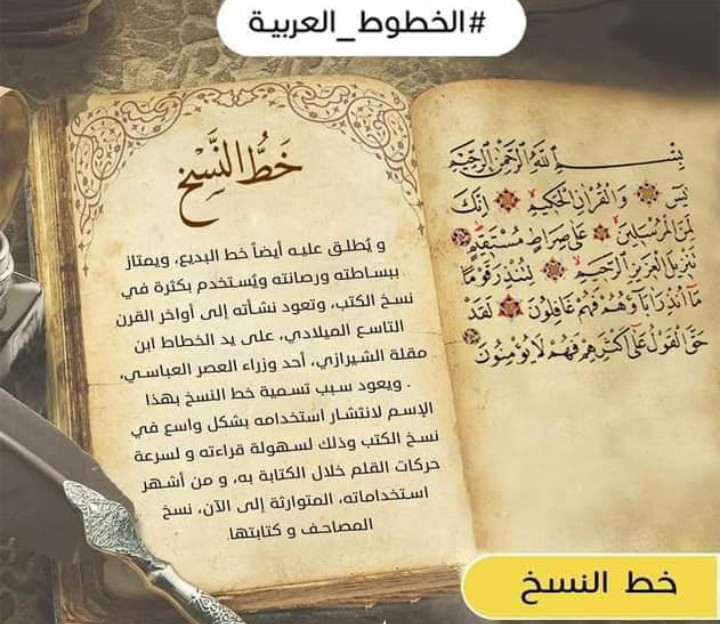 #الخطوط_العربية
بِسْمِ ٱللَّهِ ٱلرَّحْمَٰنِ ٱلرَّحِيمِ
يس وَالْقُرْآنِ الْحَكِيمِ إِنَّكَ
لَمِنَ الْمُرْسَلِينَ عَلَى صِرَاطٍ مُسْتَقِيمٍ
تَنْزِيلَ الْعَزِيزِ الرَّحِيمِ لِتُنْذِرَ قَوْمًا
مَا أُنْذِرَ آبَاؤُهُمْ فَهُمْ غَافِلُونَ لَقَدْ
حَقَّ الْقَوْلُ عَلَى أَكْثَرِهِمْ فَهُمْ لَا يُؤْمِنُونَ
خَطُّ النَّسْخِ
و يُطلق عليه أيضاً خط البديع، ويمتاز
ببساطته ورصانته ويُستخدم بكثرة في
نسخ الكتب، وتعود نشأته إلى أواخر القرن
التاسع الميلادي، على يد الخطاط ابن
مقلة الشيرازي، أحد وزراء العصر العباسي،
. ويعود سبب تسمية خط النسخ بهذا
الإسم لانتشار استخدامه بشكل واسع في
نسخ الكتب وذلك لسهولة قراءته و لسرعة
حركات القلم خلال الكتابة به، و من أشهر
استخداماته، المتوارثة إلى الآن، نسخ
المصاحف و كتابتها.
خط النسخ